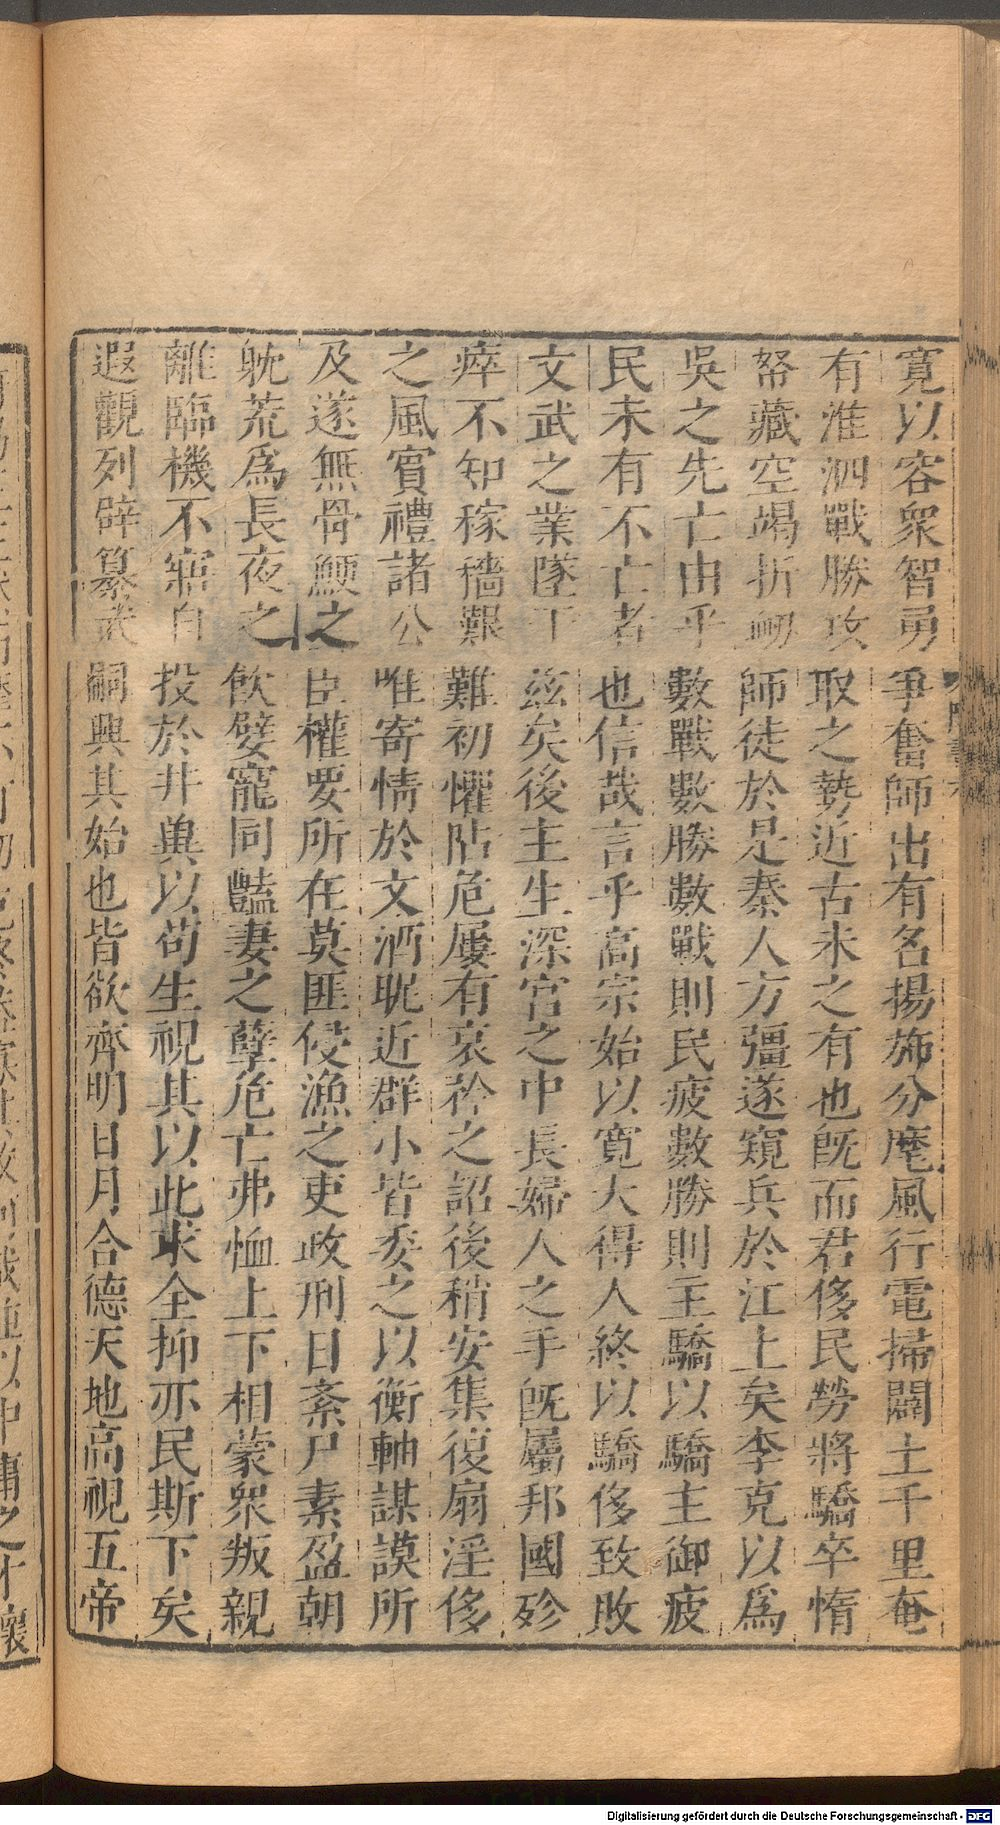 寛以容衆智勇爭奮師出有名揚斾分麾風行電掃闢土千里奄
有淮泗戰勝攻取之勢近古未之有也旣而君侈民勞將驕卒惰
帑藏空竭折衂師徒於是秦人方彊遂窺兵於江上矣李克以爲
吳之先亡由乎數戰數勝數戰則民疲數勝則主驕以驕主御疲
民未有不亡者也信哉言乎高宗始以寛大得人終以驕侈致敗
文武之業墜于茲矣後主生深宮之中長婦人之手旣屬邦國殄
瘁不知稼穡艱難初懼阽危屢有哀矜之詔後稍安集復扇淫侈
之風賓禮諸公唯寄情於文酒昵近群小皆委之以衡軸謀謨所
及遂無骨鯁之臣權要所在莫匪侵漁之吏政刑日紊尸素盈朝
躭荒爲長夜之飲嬖寵同豔妻之孽危亡弗恤上下相蒙衆叛親
離臨機不寤自投於井兾以苟生視其以此求全抑亦民斯下矣
遐觀列辟纂武嗣興其始也皆欲齊明日月合德天地高視五帝
Digitalisierung gefördert durch die Deutsche Forschungsgemeinschaft - DFG